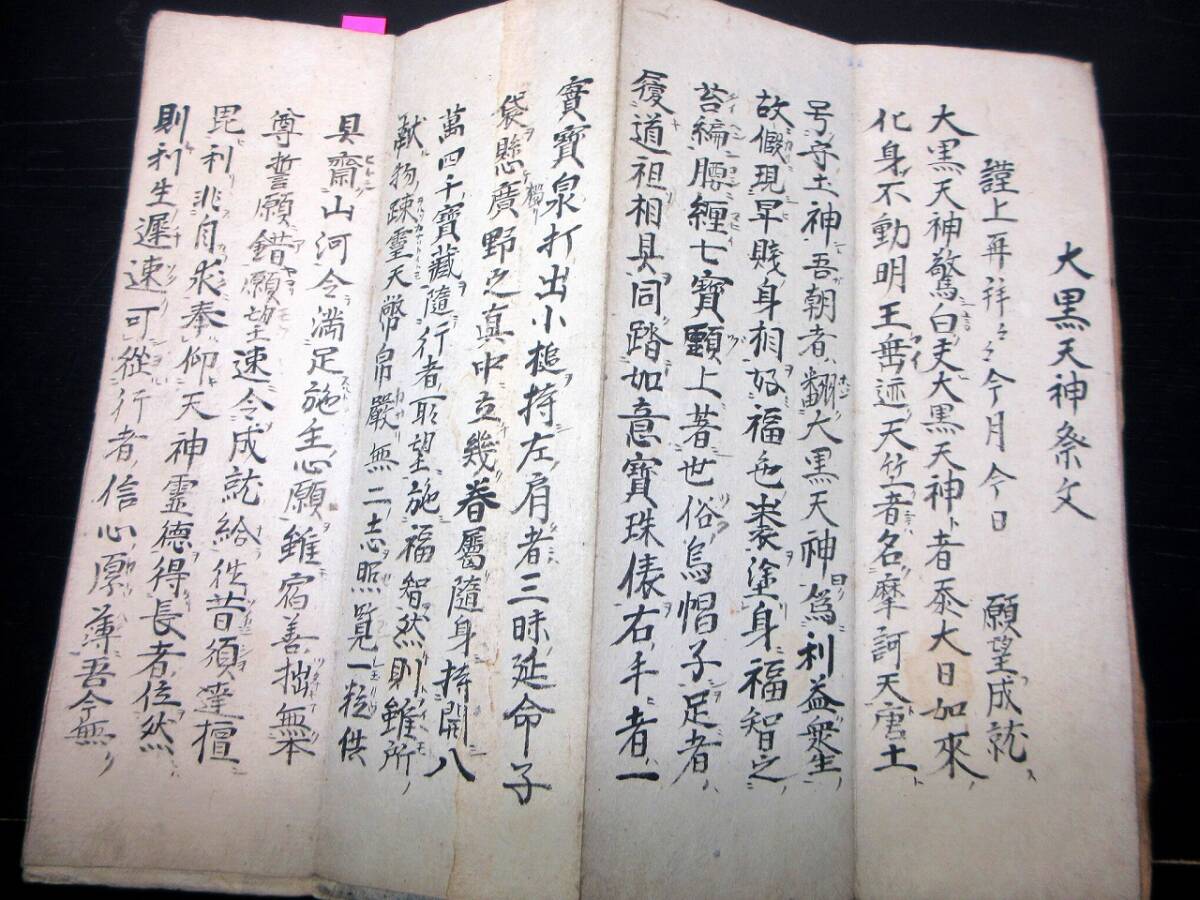 大黒天神祭文
謹上再拝々々今月今日 願望成就
大黒天神驚白夫大黒天神者忝大日如來
化身不動明王垂迹天竺者名摩訶天唐土
号守土神吾朝者翻大黒天神為利益衆生
故假現卑賤身相好福色裳塗身福智之
苔編腰纏七寶顆上著世俗烏帽子足者
履道祖相具同踏如意寶珠俵右手者一
實寳泉打出小槌持左肩者三昧延命子
袋懸廣野之真中立幾眷屬隨身持開八
萬四千寳藏隨行者所望施福智然則雖所
献物踈靈天幣帛嚴無二志照覧一粒供
具齋山河令満足施主心願雖宿善拙無本
尊誓願錯願望速令成就給徃昔須達檀
毘利非自求奉仰天神靈德得長者位然
則利生遲速可從行者信心厚薄吾今無